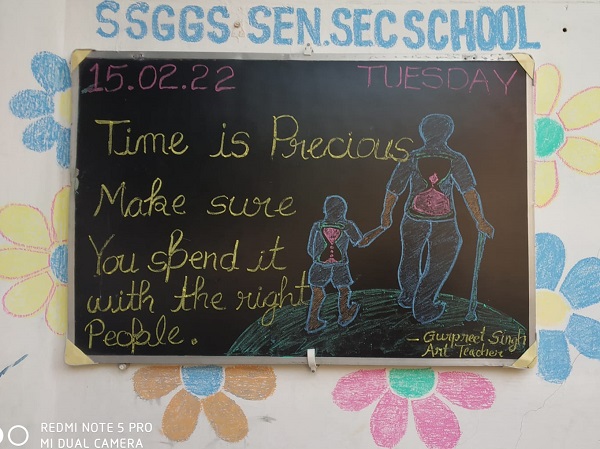 SSGGS SEN.SEC SCHOOL
15.02.22 TUESDAY
Time is Precious
Make sure
You spend it
with the right
People.
- Gurpreet Singh
Art Teacher
REDMI NOTE 5 PRO
MI DUAL CAMERA